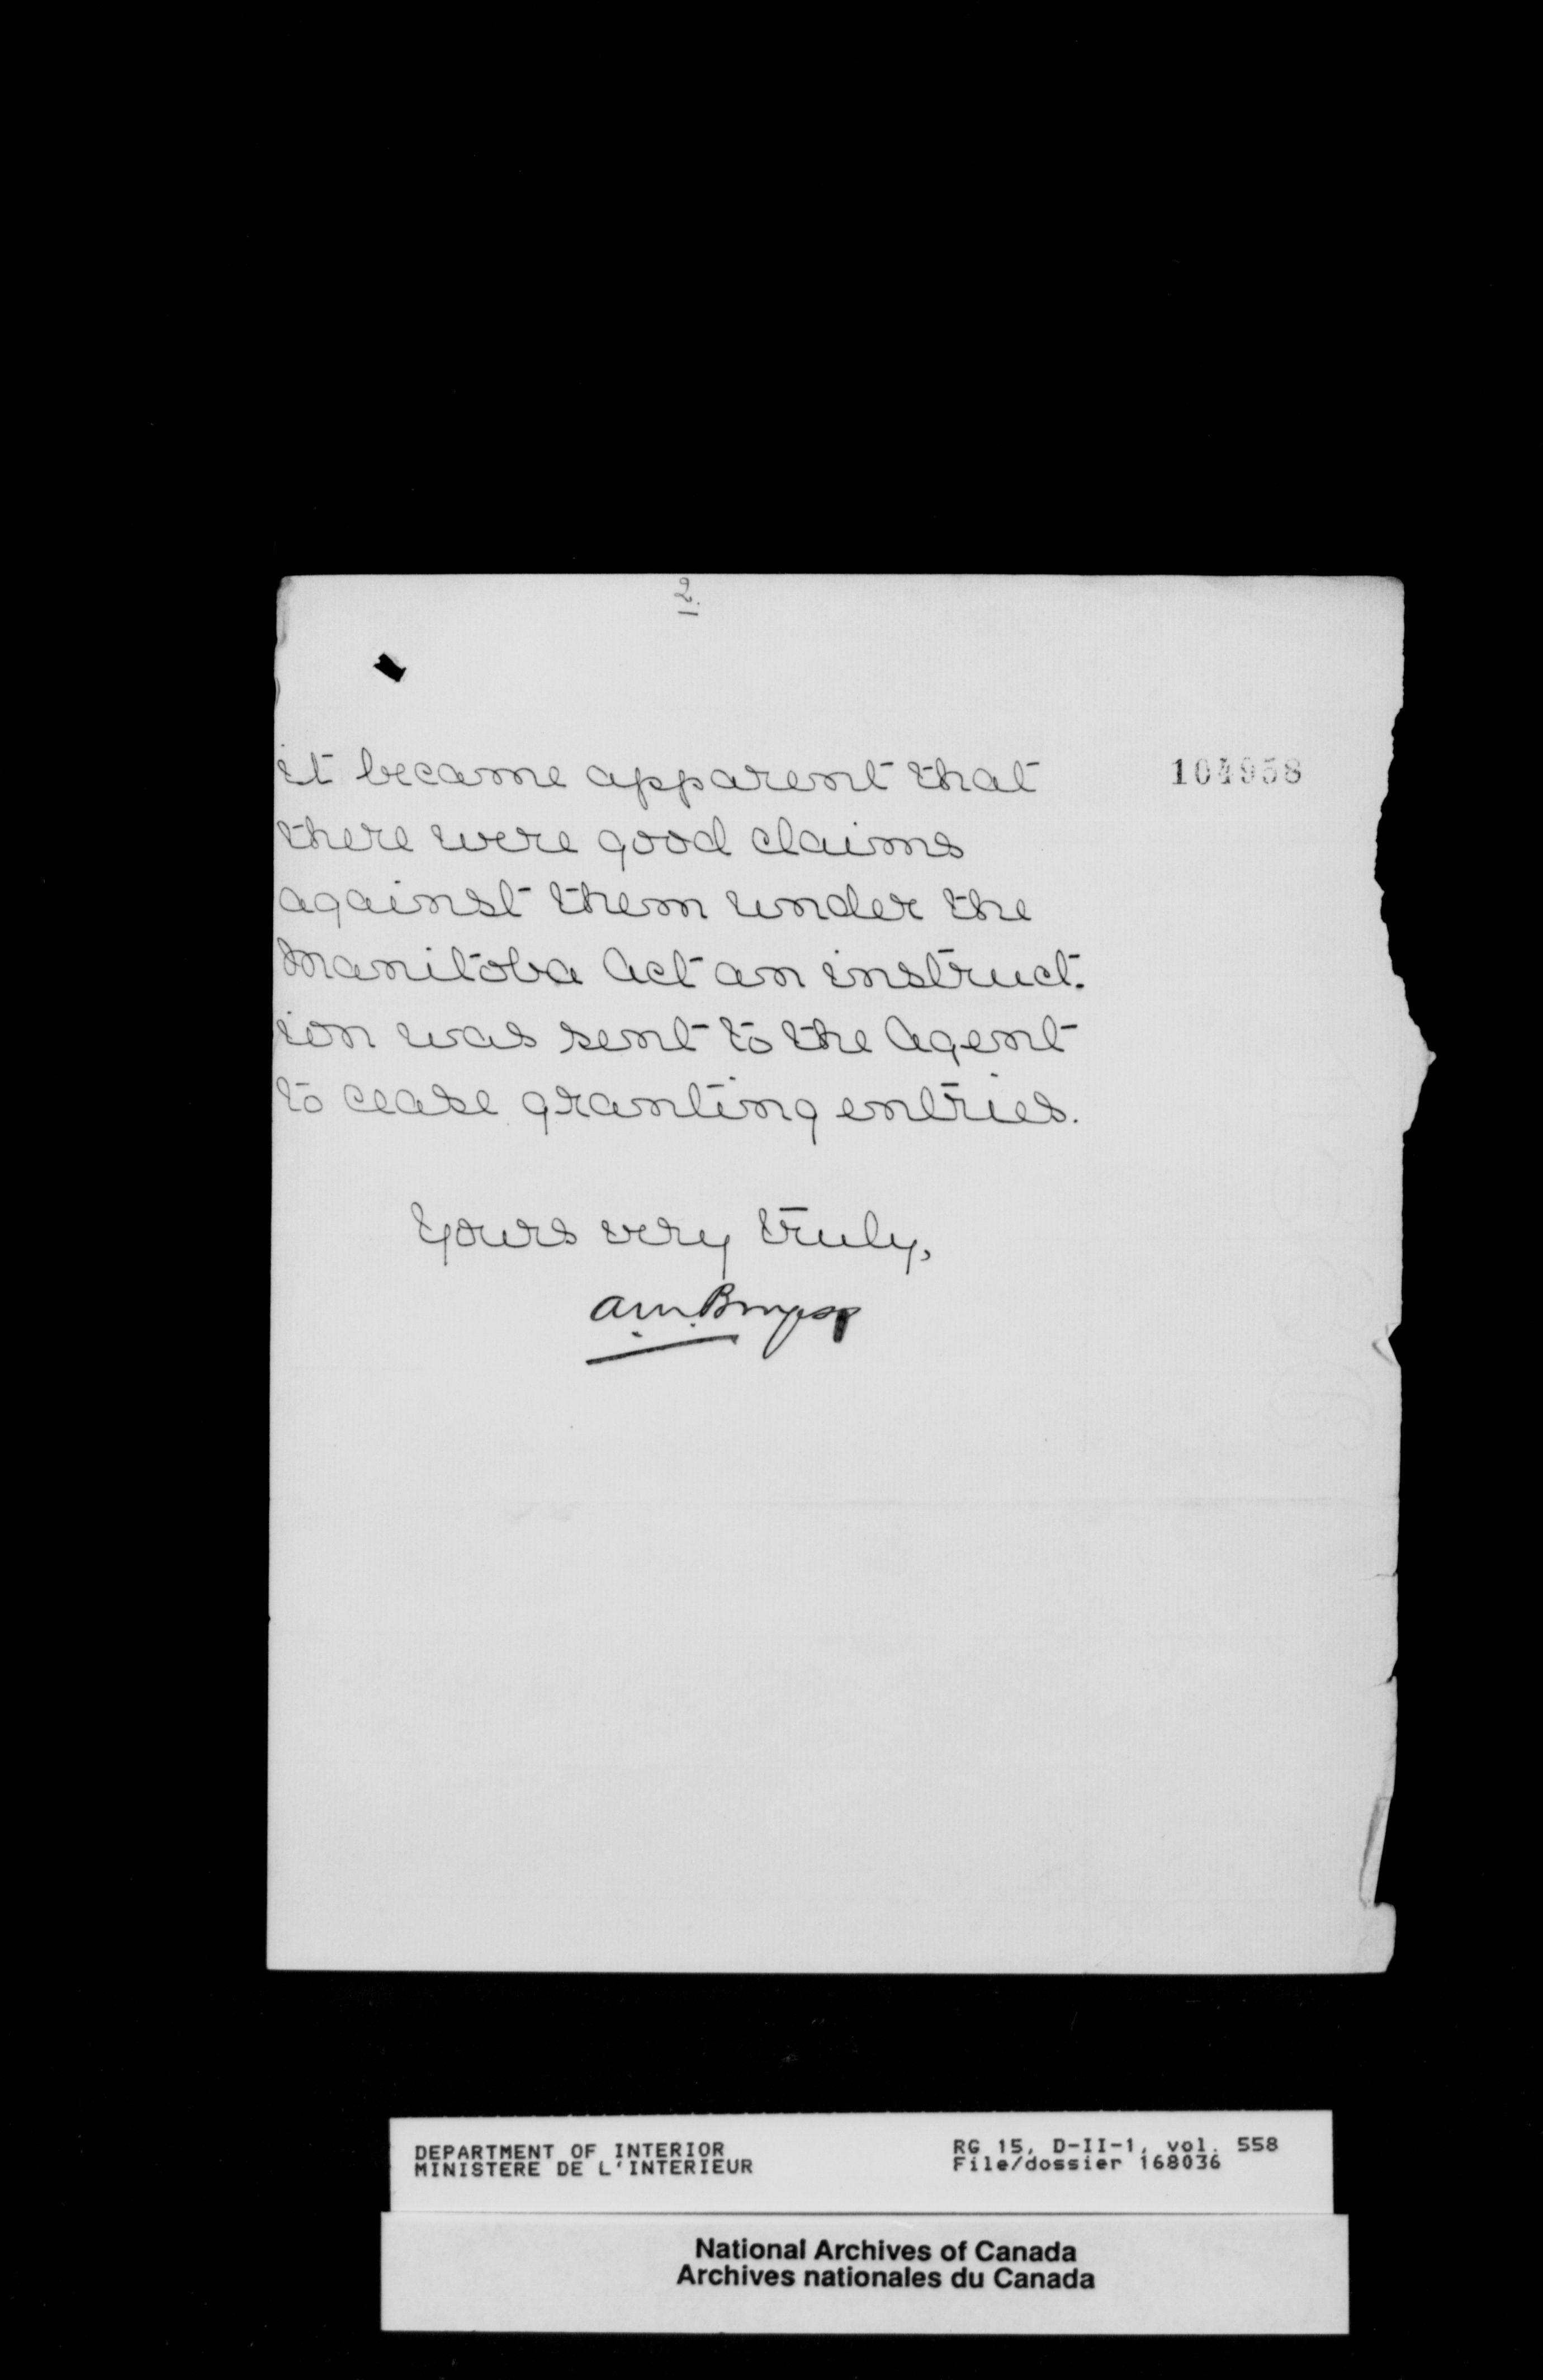 2.
it became apparent that
104958
there were good claims
against them under the
Manitoba Act an instruct-
ion was sent to the Agent
to cease granting entries.
Yours very truly,
A.M. Burgess
DEPARTMENT OF INTERIOR
MINISTERE DE L'INTERIEUR
RG 15, D-II-1, vol. 558
File/dossier 168036
National Archives of Canada
Archives nationales du Canada